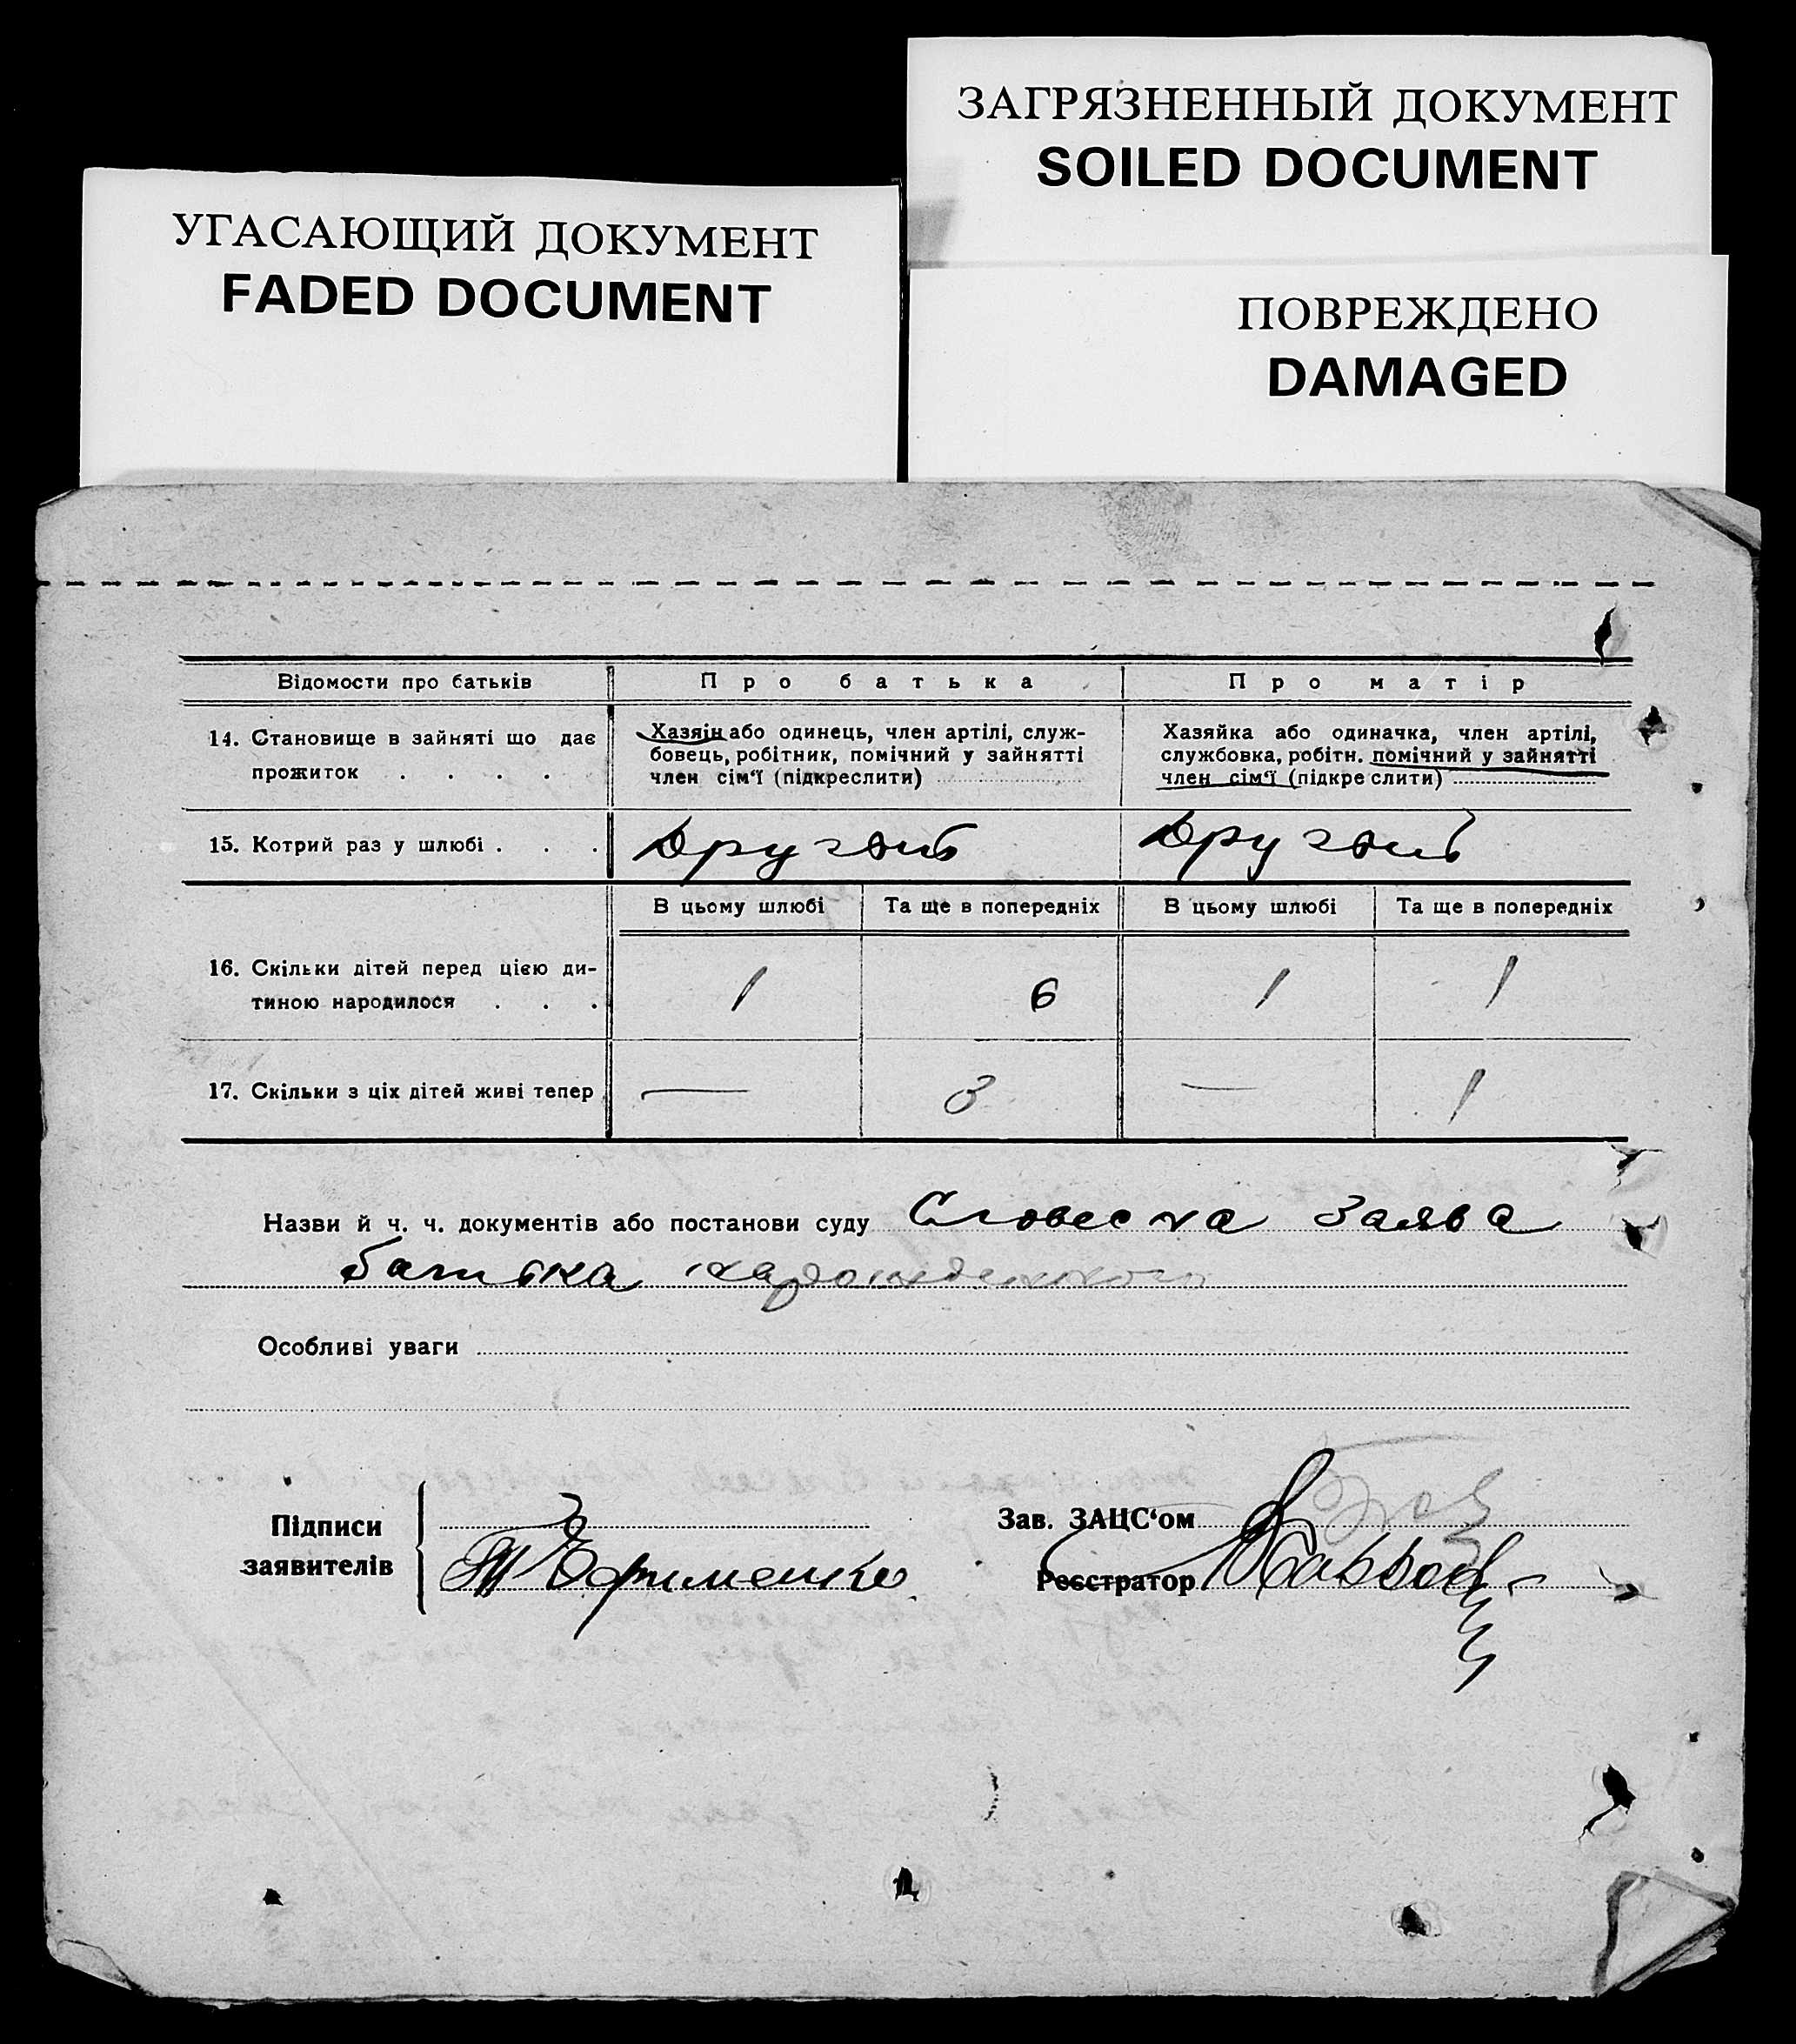 ЗАГРЯЗНЕННЫЙ ДОКУМЕНТ
SOILED DOCUMENT
УГАСАЮЩИЙ ДОКУМЕНТ
FADED DOCUMENT
ПОВРЕЖДЕНО
DAMAGED
Відомости про батьків Про батька Про матір
14. Становище в зайняті що дає прожиток . . . .
Хазяін або одинець, член артілі, служ-
бовець, робітник, помічний у зайнятті
член сім‘ї (підкреслити)
Хазяйка або одиначка, член артілі,
службовка, робітн. помічний у зайнятті
член сім‘ї (підкреслити)
15. Котрий раз у шлюбі . . . Другий Другий
В цьому шлюбі Та ще в попередніх В цьому шлюбі Та ще в попередніх
16. Скільки дітей перед цією ди-
тиною народилося . . . 1 6 1 1
17. Скільки з ціх дітей живі тепер — 3 — 1
Назви й ч. ч. документів або постанови суду Словесна Заява
батька
Особливі уваги
Підписи
заявителів
Ефименко
Зав. ЗАЦС‘ом
Реєстратор